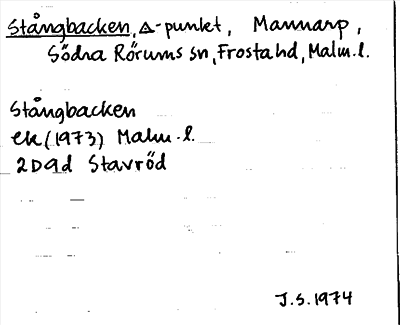 Stångbacken, Δ-punkt, Mannarp,
Södra Rörums sn, Frostahd, Malm.l.
Stångbacken
ek (1973) Malm.l.
2D9d Stavröd
J.S. 1974